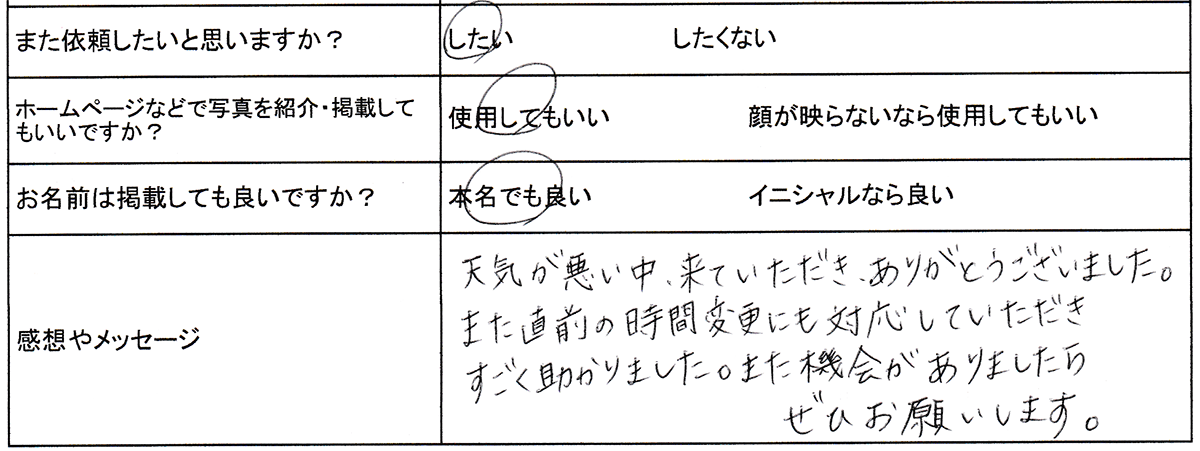 また依頼したいと思いますか？
したい
したくない
ホームページなどで写真を紹介・掲載して
もいいですか？
使用してもいい
顔が映らないなら使用してもいい
お名前は掲載しても良いですか？
本名でも良い
イニシャルなら良い
感想やメッセージ
天気が悪い中、来ていただき、ありがとうございました。
また直前の時間変更にも対応していただき
すごく助かりました。また機会がありましたら
ぜひお願いします。